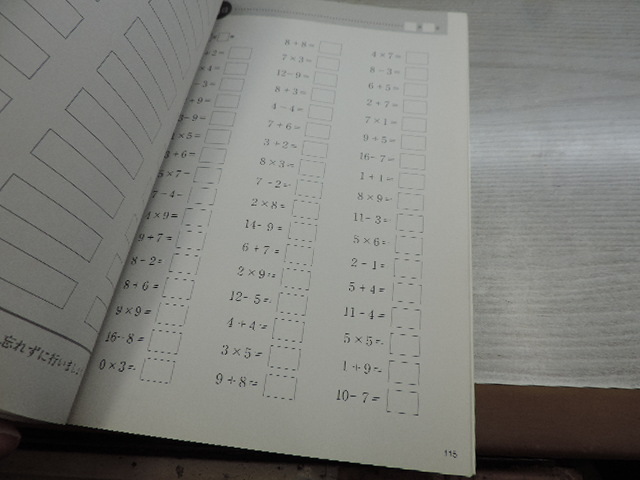 忘れずに行いまし
3+6=
5×7=
7-4=
4×9=
9+7=
8-2=
8+6=
9×9=
16-8=
0×3=
8+8=
7×3=
12-9=
8+3=
4-4=
7+6=
3+2=
8×3=
7-2=
2×8=
14-9=
6+7=
2×9=
12-5=
4+4=
3×5=
9+8=
4×7=
8-3=
6+5=
2+7=
7×1=
9+5=
16-7=
1+1=
8×9=
11-3=
5×6=
2-1=
5+4=
11-4=
5×5=
1+9=
10-7=
115